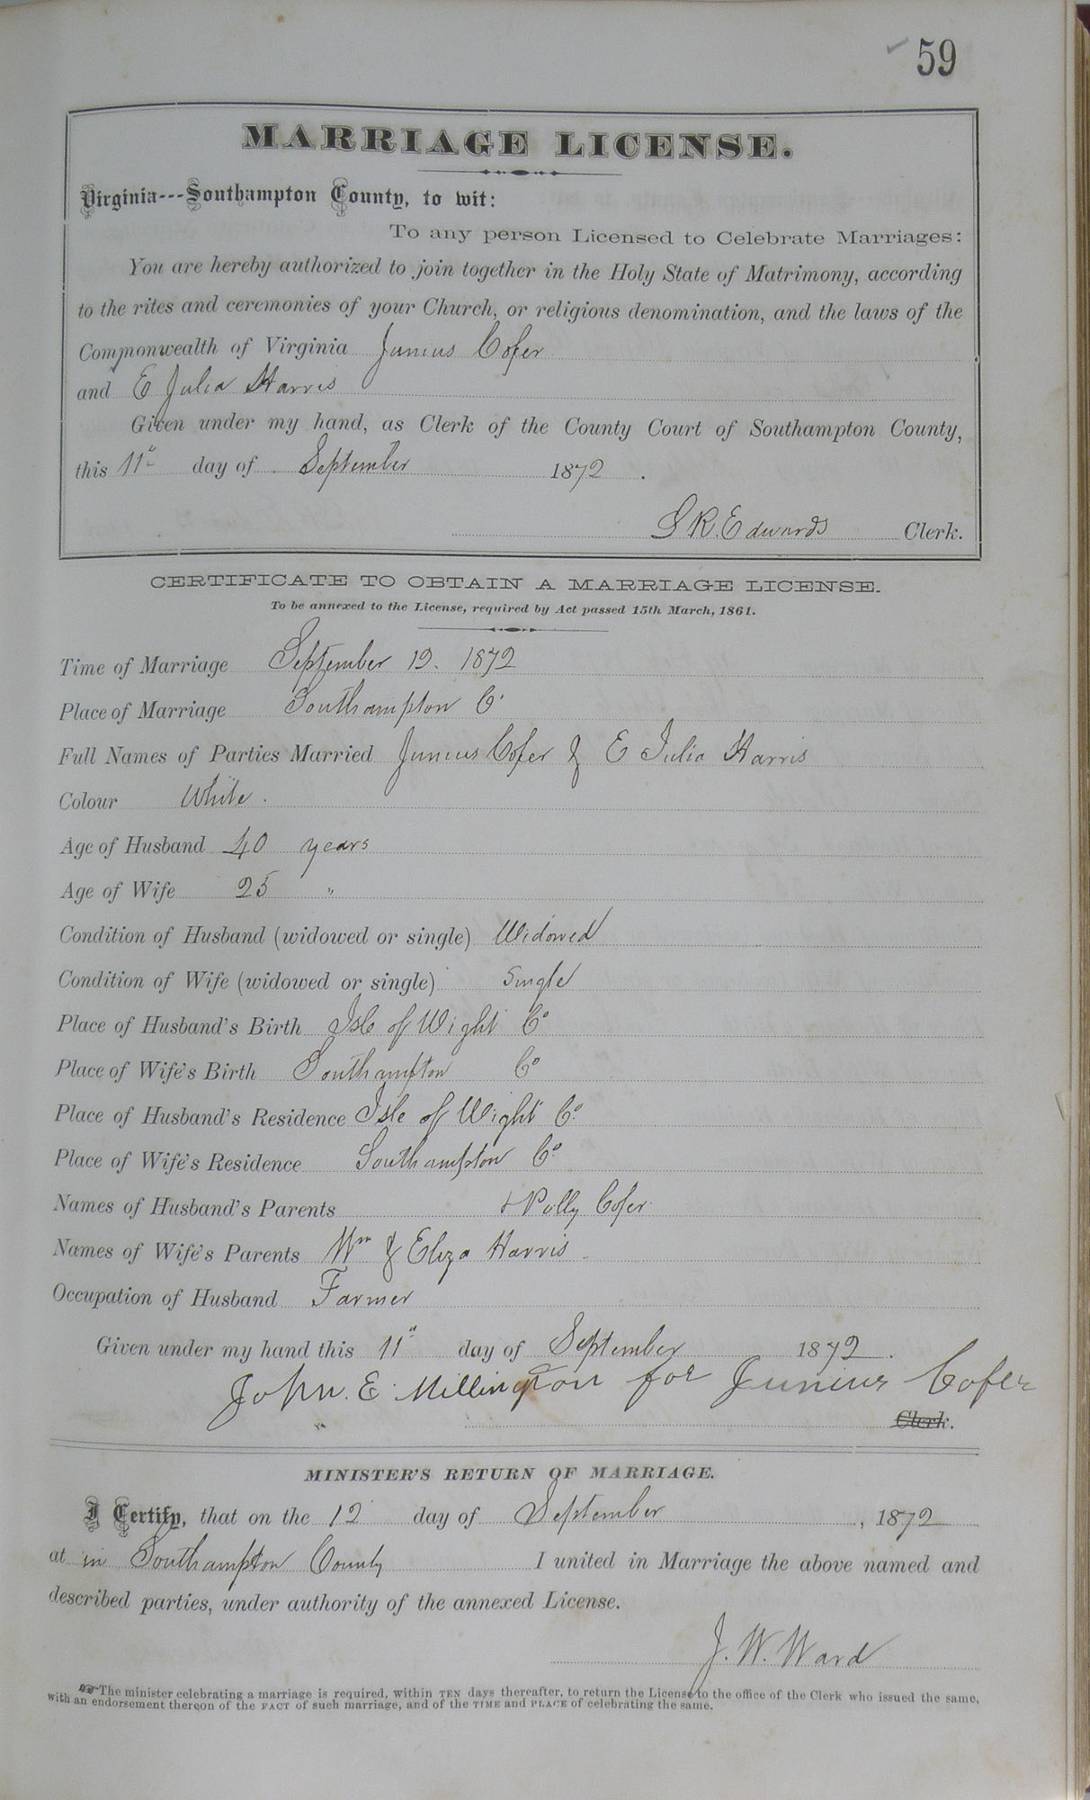 59
MARRIAGE LICENSE.
Virginia---Southampton County, to wit:
To any person Licensed to Celebrate Marriages:
You are hereby authorized to join together in the Holy State of Matrimony, according
to the rites and ceremonies of your Church, or religious denomination, and the laws of the
Commonwealth of Virginia Junius Cofer
and E Julia Harris
Given under my hand, as Clerk of the County Court of Southampton County,
this 11" day of September 1872.
S R. Edwards Clerk.
CERTIFICATE TO OBTAIN A MARRIAGE LICENSE.
To be annexed to the License, required by Act passed 15th March, 1861.
Time of Marriage September 12. 1872
Place of Marriage Southampton Co
Full Names of Parties Married Junius Cofer & E Julia Harris
Colour White.
Age of Husband 40 years
Age of Wife 25 "
Condition of Husband (widowed or single) Widowed
Condition of Wife (widowed or single) Single
Place of Husband's Birth Isle of Wight Co
Place of Wife's Birth Southampton Co
Place of Husband's Residence Isle of Wight Co.
Place of Wife's Residence Southampton Co.
Names of Husband's Parents & Polly Cofer
Names of Wife's Parents Wm & Eliza Harris
Occupation of Husband Farmer
Given under my hand this 11" day of September 1872.
John. E. Millington for Junius Cofer
Clerk.
MINISTER'S RETURN OF MARRIAGE.
I Certify, that on the 12 day of September, 1872
at in Southampton County I united in Marriage the above named and
described parties, under authority of the annexed License.
J. W. Ward
The minister celebrating a marriage is required, within TEN days thereafter, to return the License to the office of the Clerk who issued the same,
with an endorsement thereon of the FACT of such marriage, and of the TIME and PLACE of celebrating the same.